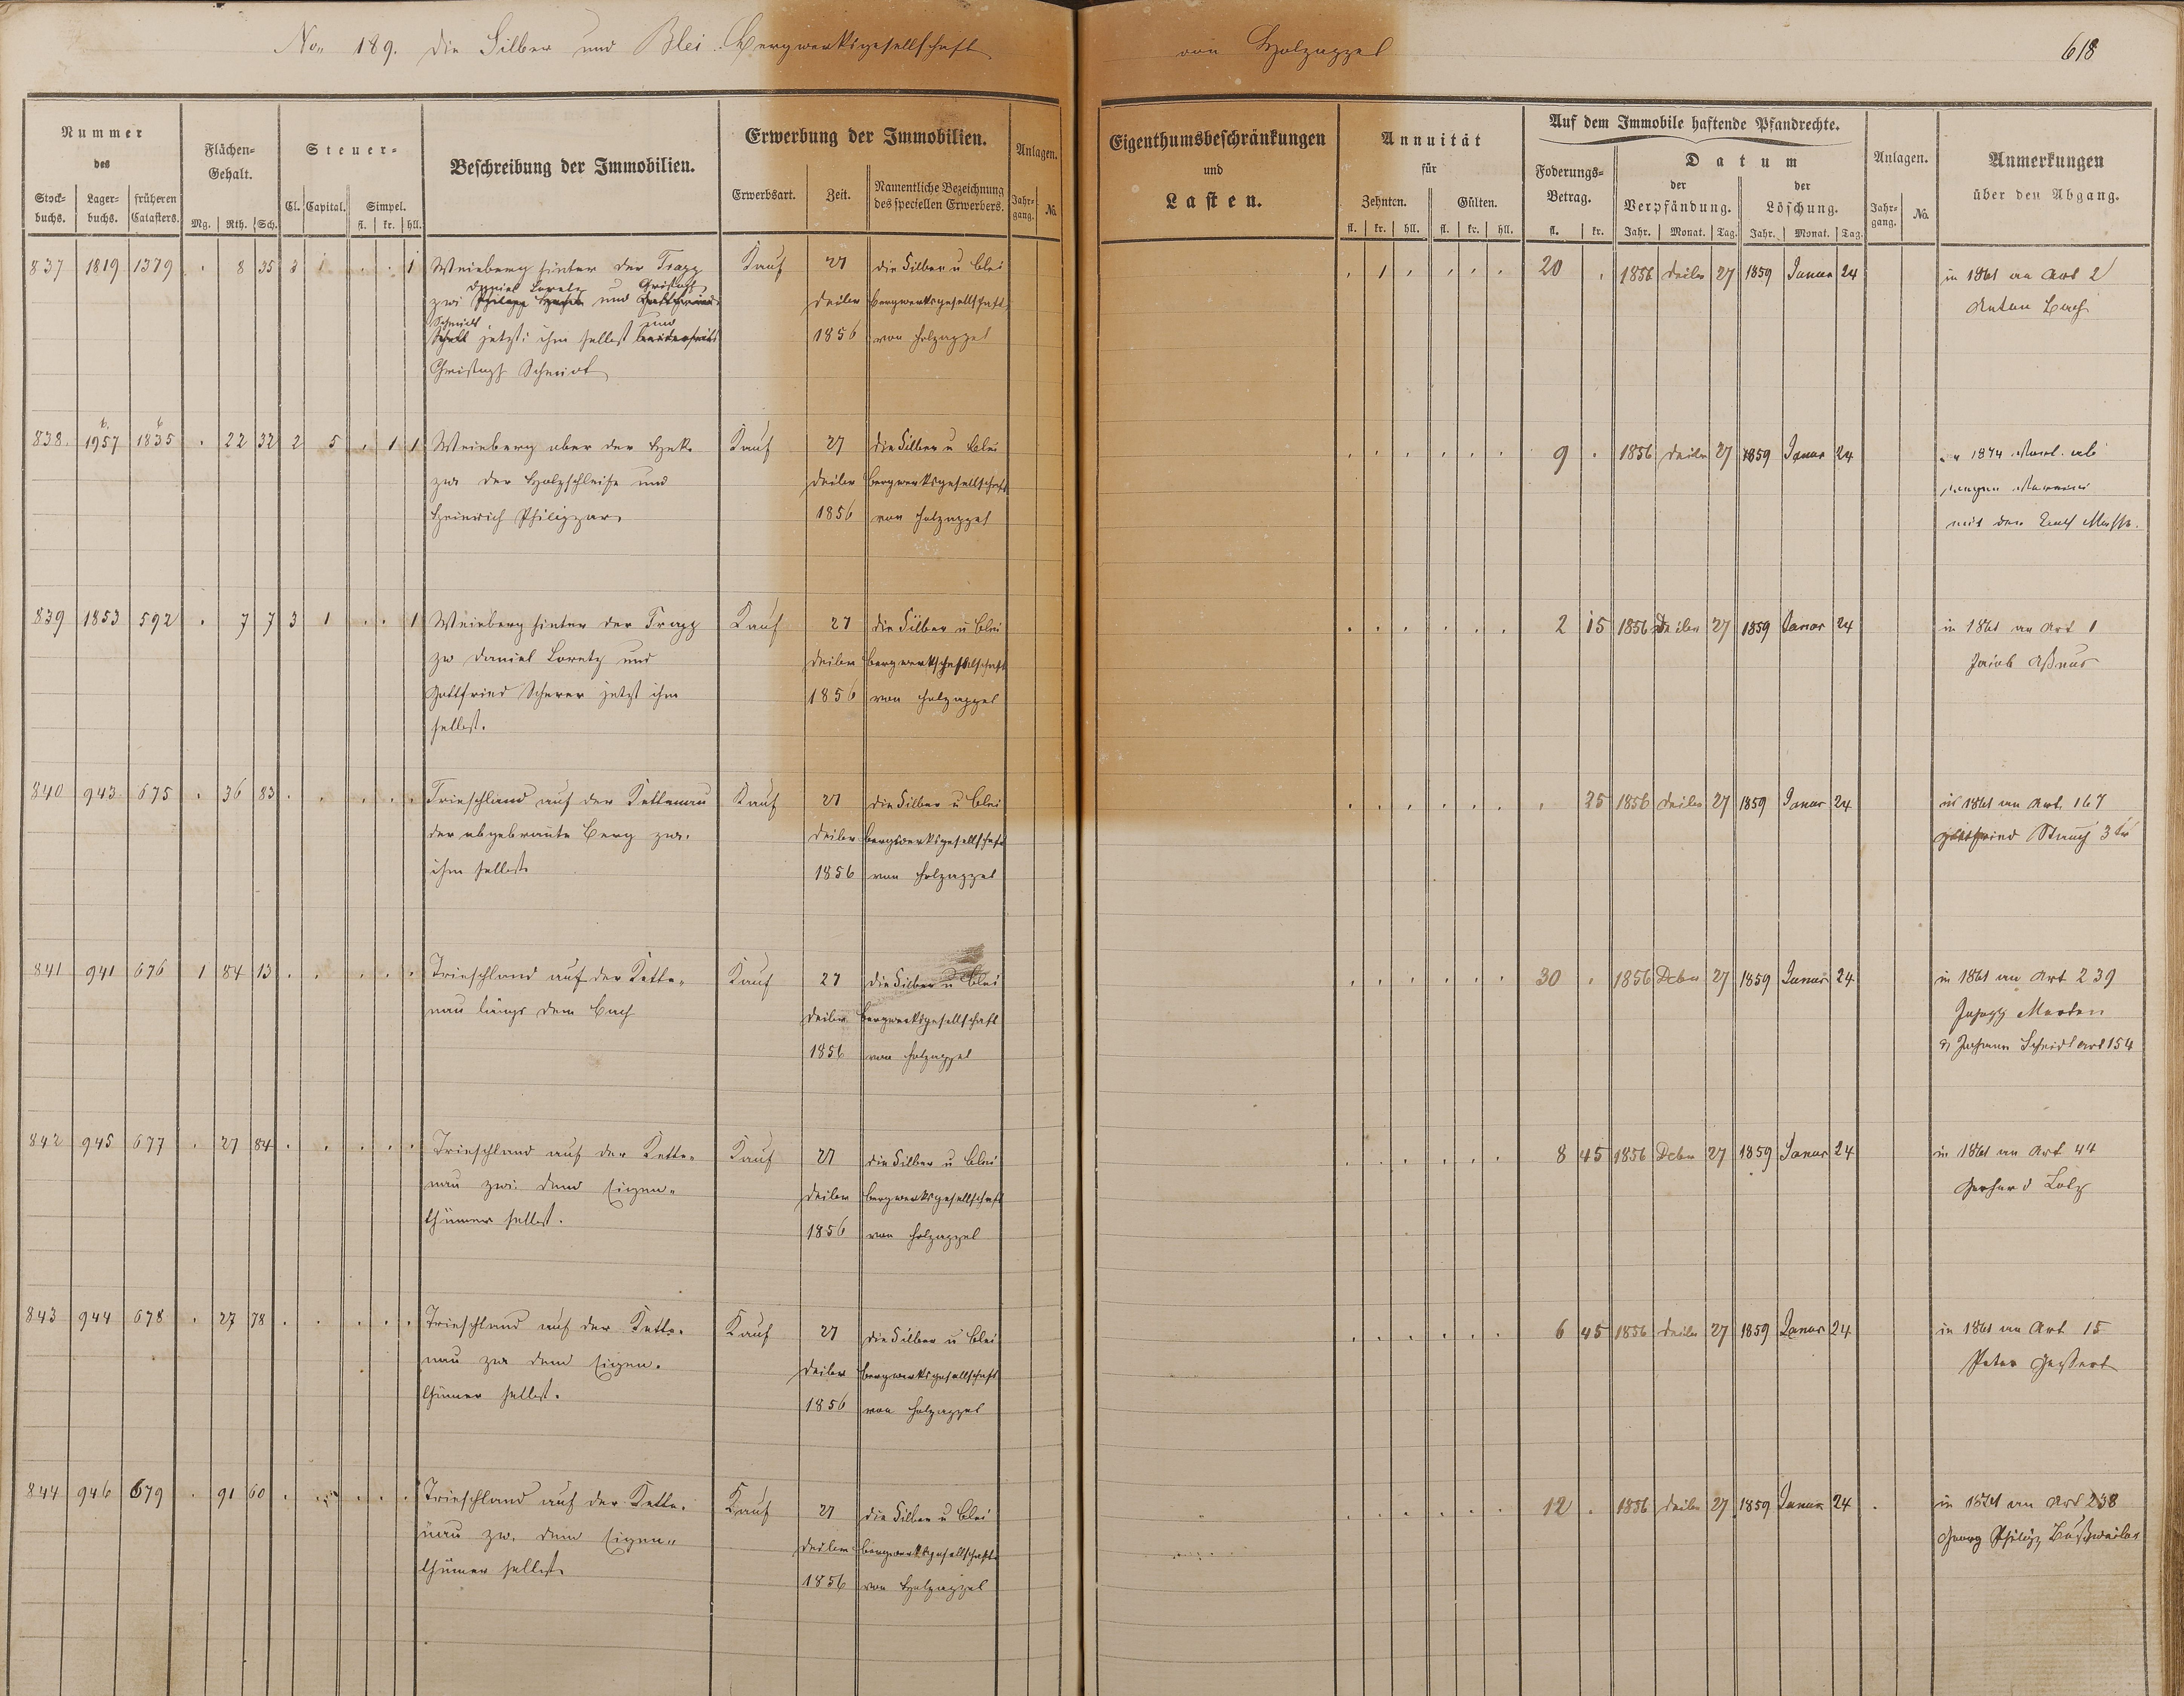 No. 189. Die Silber und Blei Bergwerksgesellschaft von Holzappel
618
Nummer des
Stock-buchs. Lager-buchs. früheren Catasters.
Flächen-Gehalt.
Mg. Rth. Sch.
Steuer-
Cl. Capital. Simpel.
fl. kr. hll.
Beschreibung der Immobilien.
Erwerbung der Immobilien.
Erwerbsart. Zeit. Namentliche Bezeichnung des speciellen Erwerbers.
Anlagen.
Jahr-gang. No.
Eigenthumsbeschränkungen und Lasten.
Annuität für
Zehnten. Gülten.
fl. kr. hll. fl. kr. hll.
Auf dem Immobile haftende Pfandrechte.
Foderungs-Betrag.
fl. kr.
Datum
der Verpfändung. der Löschung.
Jahr. Monat. Tag. Jahr. Monat. Tag.
Anlagen.
Jahr-gang. No.
Anmerkungen über den Abgang.
837 1819 1379 . 8 35 3 1 . . 1 Weinberg hinter der Trapp Kauf 27 die Silber u Blei . 1 . . . . 20 . 1856 27 1859 Januar 24 in 1861 an Art 2
Daniel Loretz u Christoph
zwi und bergwerksgesellschaft Anton Bach
Schmidt und
jetzt: ihm selbst 1856 von Holzappel
Christoph Schmidt
838. 1957 1835 . 22 32 2 5 . 1 1 Weinberg ober der Kauf 27 die Silber u Blei . . . . . . 9 . 1856 27 1859 Januar 24 1874
zw der Holzschleife und bergwerksgesellschaft
Heinrich Philippar 1856 von Holzappel mit der
839 1853 592 . 7 7 3 1 . . 1 Weinberg hinter der Trapp Kauf 27 die Silber u Blei . . . . . . 2 15 1856 27 1859 Januar 24 in 1861 an Art 1
zw Daniel Loretz und Jacob
Gottfried Scherer jetzt ihm 1856 von Holzappel
selbst.
840 943 675 . 36 83 . . . . . Trieschland auf der Kettenau Kauf 27 die Silber u Blei . . . . . . . 25 1856 27 1859 Januar 24 in 1861 an Art. 167
der abgebrannte Berg zw. bergwerksgesellschaft Gottfried Strauch 3te
ihm selbst 1856 von Holzappel
841 941 676 1 84 13 . . . . . Trieschland auf der Kette- Kauf 27 die Silber u Blei . . . . . . 30 . 1856 Dcbr 27 1859 Januar 24 in 1861 an Art 239
nau längs dem Bach bergwerksgesellschaft Joseph Marten
1856 von Holzappel u Johann Scheid Art 154
842 945 677 . 27 84 . . . . . Trieschland auf der Kette- Kauf 27 die Silber u Blei . . . . . . 8 45 1856 Dcbr 27 1859 Januar 24 in 1861 an Art 44
nau zwi: dem Eigen- bergwerksgesellschaft Gerhard Lotz
thümer selbst. 1856 von Holzappel
843 944 678 . 27 78 . . . . . Trieschland auf der Kette- Kauf 27 die Silber u Blei . . . . . . 6 45 1856 27 1859 Januar 24 in 1861 an Art 15
nau zw dem Eigen- bergwerksgesellschaft Peter
thümer selbst. 1856 von Holzappel
844 946 679 . 91 60 . . . . . Trieschland auf der Kette- Kauf 27 die Silber u Blei . . . . . . 12 . 1856 27 1859 Januar 24 in an Art 238
nau zw. dem Eigen- bergwerksgesellschaft Georg Philipp
thümer selbst. 1856 von Holzappel